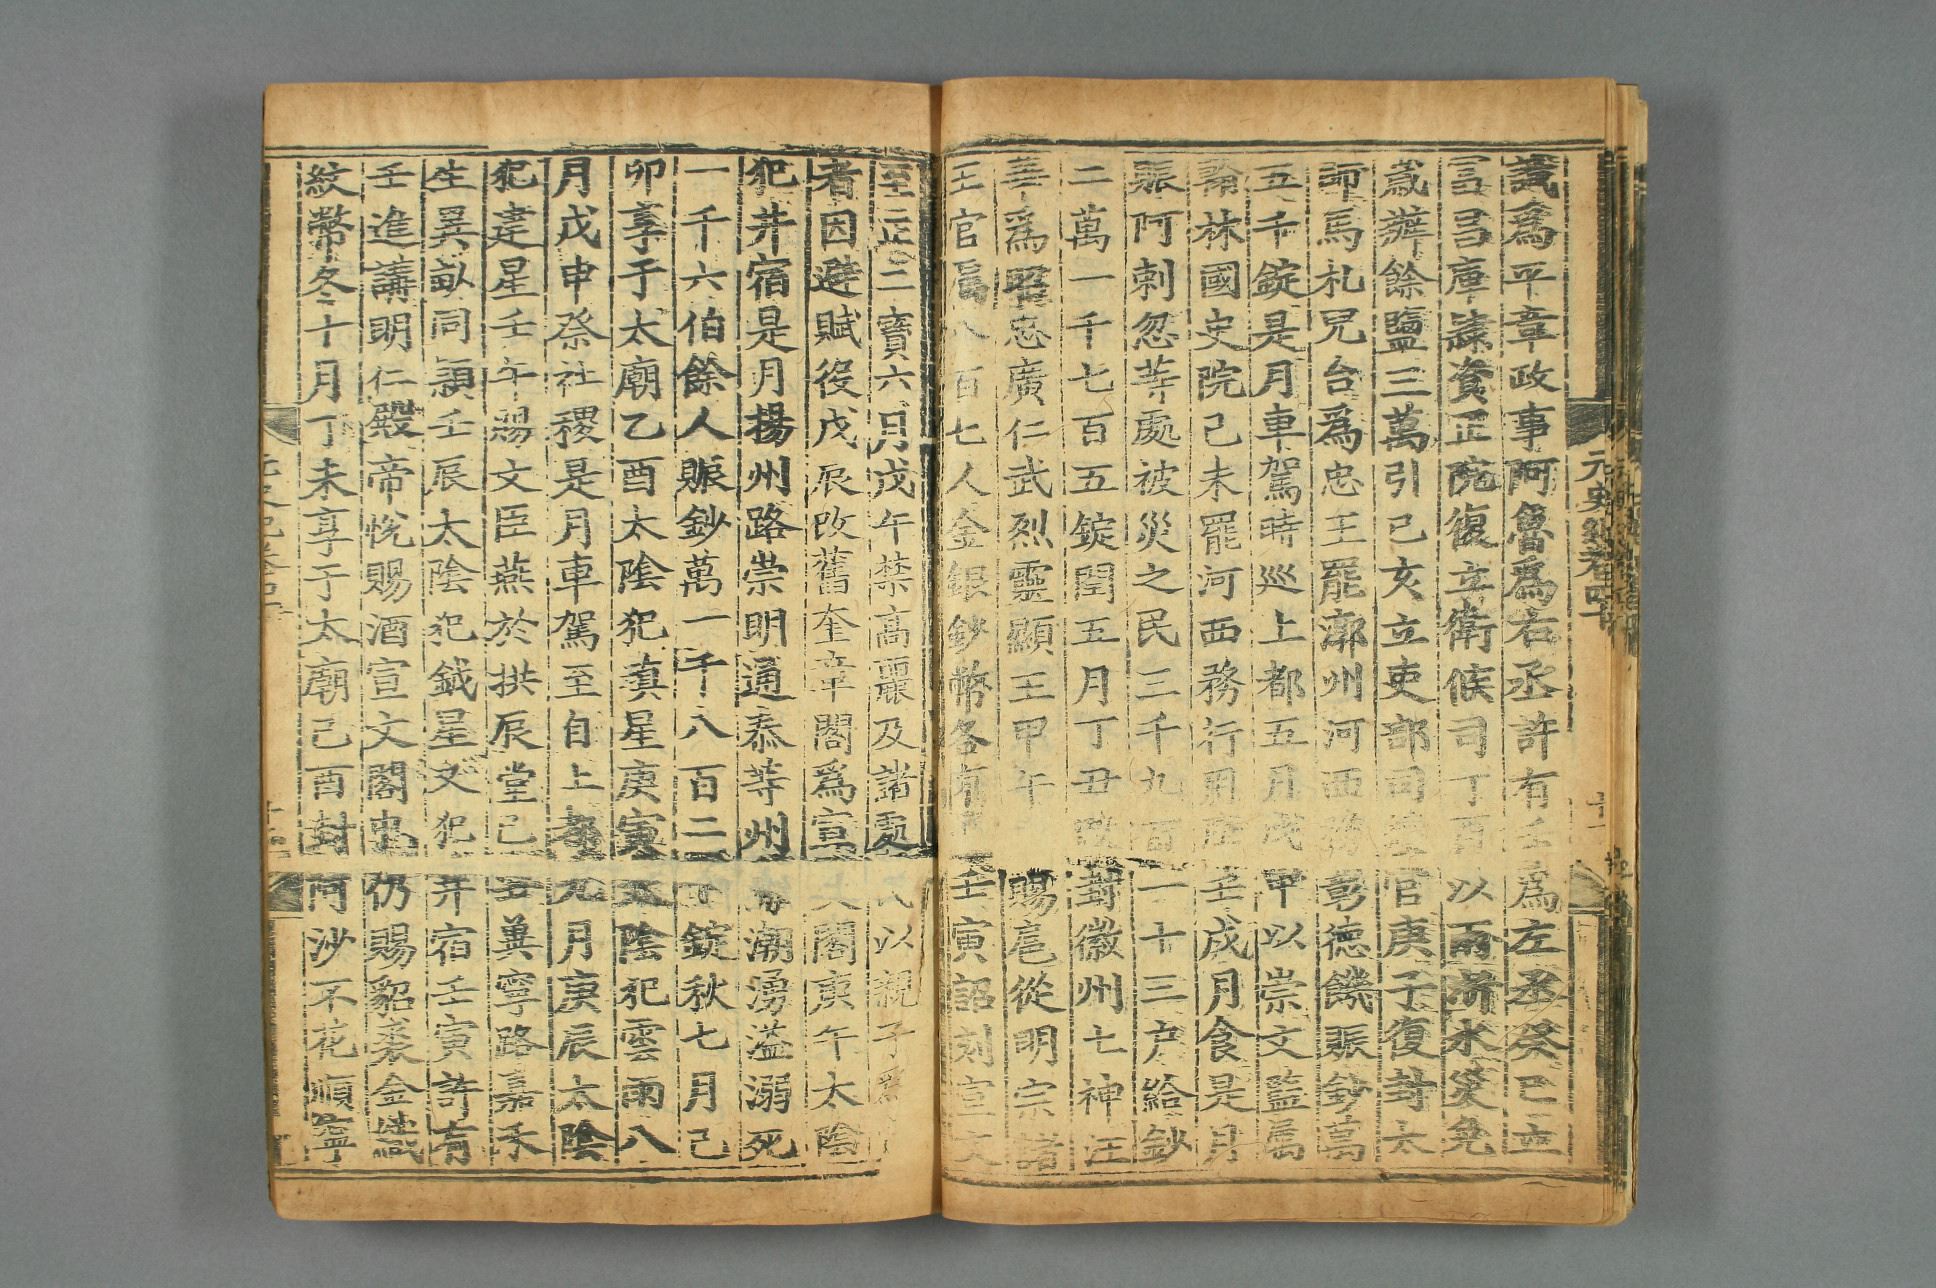 識爲平章政事阿魯爲右丞許有壬爲左丞癸巳立
宮相庫資正院復立衛候司丁酉以兩浙水災免
歲辦餘鹽三萬引己亥立吏部司績官庚子復封太
師馬札兒台爲忠王罷漷州河西務彰德饑賑鈔萬
五千錠是月車駕時巡上都五月戊甲以崇文監屬
翰林國史院己未罷河西務行用庫壬戌月食是月
賑阿剌忽等處被災之民三千九百一十三户給鈔
二萬一千七百五錠閏五月丁丑改封徽州七神汪
華爲昭忠廣仁武烈靈顯王甲午賜扈從明宗諸
王官屬八百七人金銀鈔幣各有差壬寅詔刻宣文
至正二寶六月戊午禁高麗及諸處民以親子爲
者因避賦役戊辰改舊奎章閣爲宣文閣庚午太陰
犯井宿是月揚州路崇明通泰等州海潮湧溢溺死
一千六伯餘人賑鈔萬一千八百二十錠秋七月己
卯享于太廟乙酉太陰犯填星庚寅太陰犯雲雨八
月戊申祭社稷是月車駕至自上都九月庚辰太陰
犯建星壬午賜文臣燕於拱辰堂己丑冀寧路嘉禾
生異畝同穎壬辰太陰犯鉞星又犯井宿壬寅許有
壬進講明仁殿帝悅賜酒宣文閣中仍賜貂裘金織
紋幣冬十月丁未享于太廟己酉封阿沙不花順寧
元史紀卷四十